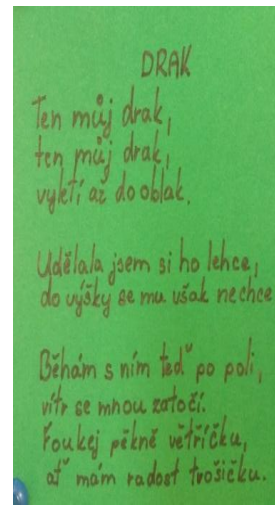 DRAK
Ten můj drak,
ten můj drak,
vyletí až do oblak.
Udělala jsem si ho lehce,
do výšky se mu však nechce
Běhám s ním teď po poli,
vítr se mnou zatočí.
Foukej pěkně větříčku,
ať mám radost trošičku.